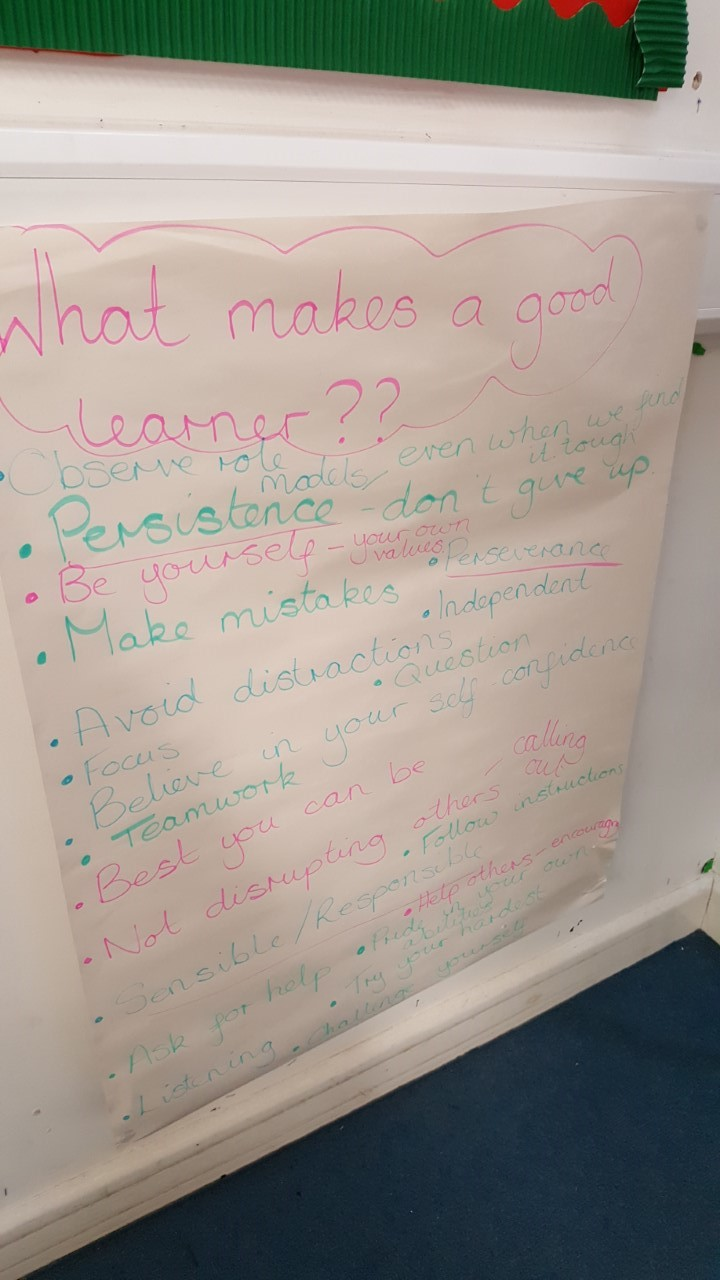 What makes a good
learner??
• Observe role models/ even when we find it tough
• Persistence - don't give up.
• Be yourself - your own values.
• Perseverance
• Make mistakes
• Independent
• Avoid distractions
• Question
• Focus
• Believe in your self-confidence
• Teamwork
• Best you can be
• Not disrupting others / calling out
• Follow instructions
• Sensible/Responsible
• Help others - encourage
• Ask for help
• Pride in your own abilities
• Try your hardest
• Listening
• Challenge yourself